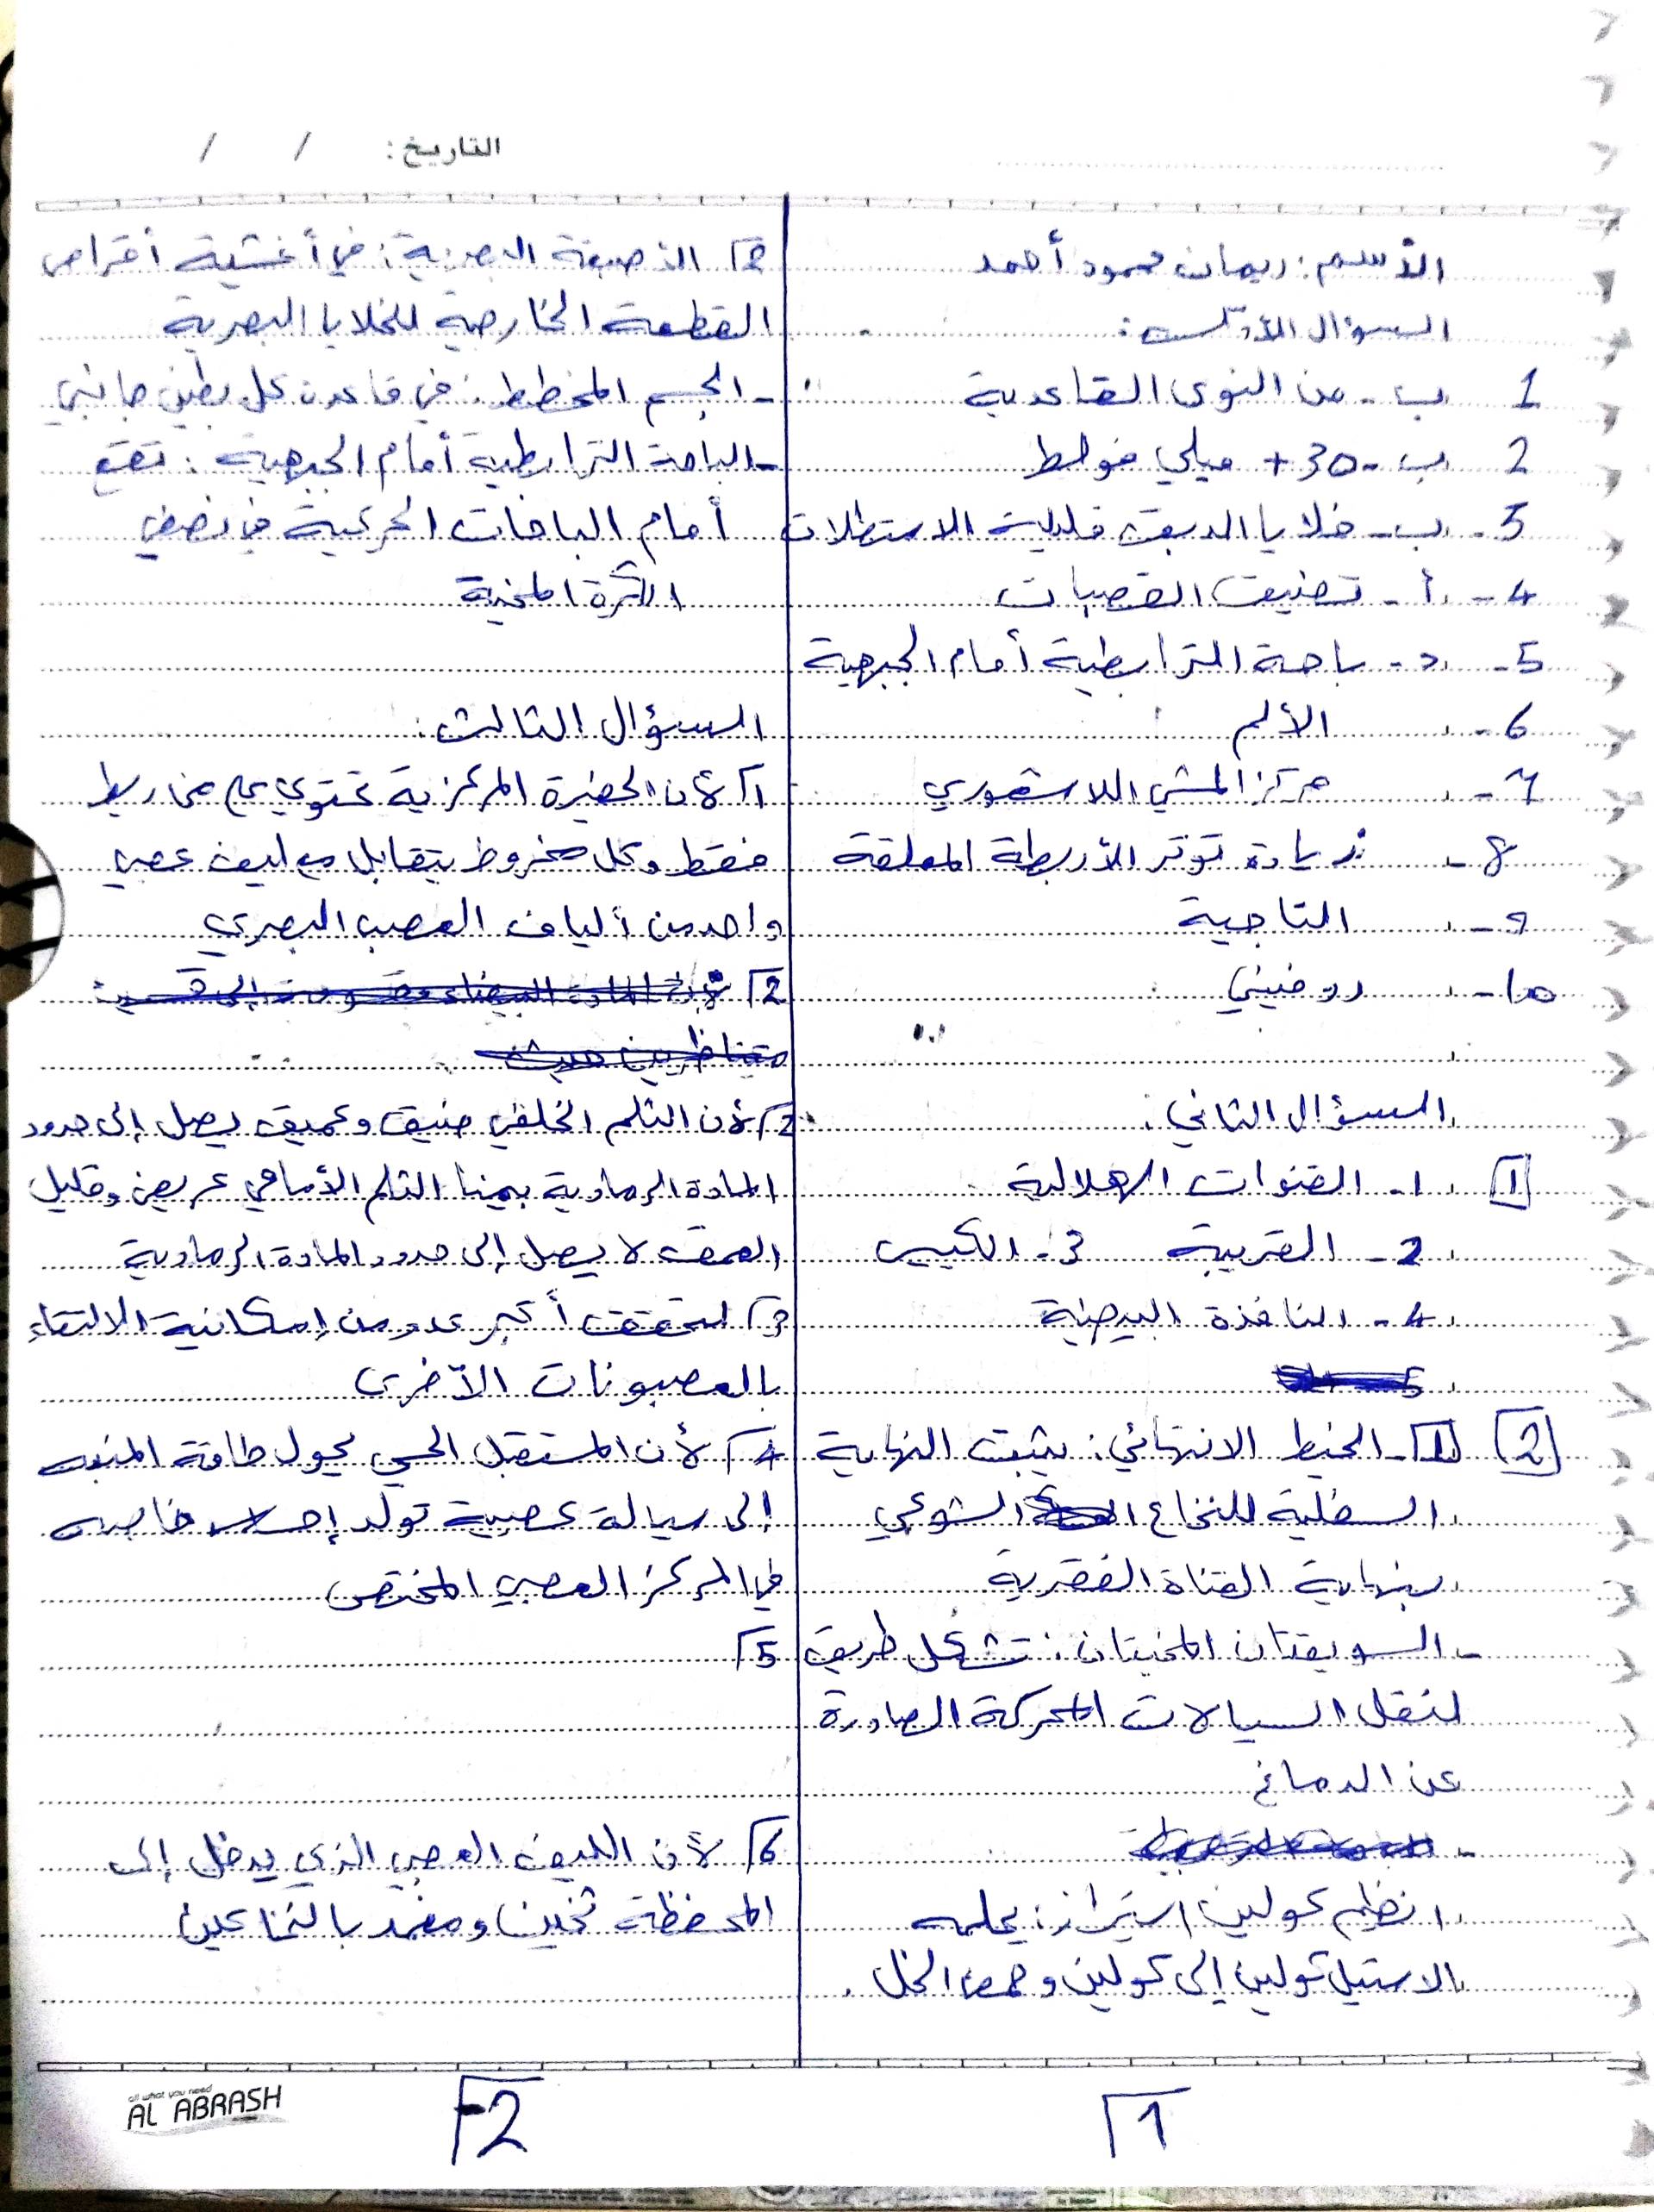 التاريخ: / /
الأسم: ريمان محمود أحمد
السؤال الأول:
1 ب - من النوى القاعدية
2 ب - 30+ ميلي فولط
3 - ب - خلايا الدبق قليلة الاستطلات
4 - أ - تضيق القصبات
5 - د - باحة الترابطية أمام الجبهية
6 - الألم
7 - مركز المشي اللاشعوري
8 - زيادة توتر الأربطة المعلقة
9 - التاجية
10 - روفيني
السؤال الثاني:
1 1 - القنوات الهلالية
2 - القريبة 3 - الكييس
4 - النافذة البيضية
2 1 - الخيط الانتهائي: يثبت النهاية
السفلية للنخاع الشوكي
بنهاية القناة الفقرية
- السويقتان المخيتان: تشكل طريق
لنقل السيالات المحركة الصادرة
عن الدماغ
- انظيم كولين استيراز: يحلمه
الاستيل كولين إلى كولين وحمض الخل.
1
2 الأصبغة البصرية: في أغشية أقراص
القطعة الخارجية للخلايا البصرية
- الجسم المخطط: في قاعدة كل بطين جانبي
- الباحة الترابطية أمام الجبهية: تقع
أمام الباحات الحركية في نصفي
الكرة المخية
السؤال الثالث:
1 لأن الحفيرة المركزية تحتوي على مخاريط
فقط وكل مخروط يتقابل مع ليف عصبي
واحد من ألياف العصب البصري
2 لأن الثلم الخلفي ضيق وعميق يصل إلى حدود
المادة الرمادية بيمنا الثلم الأمامي عريض وقليل
العمق لا يصل إلى حدود المادة الرمادية
3 لتحقق أكبر عدد من إمكانية الالتقاء
بالعصبونات الأخرى
4 لأن المستقبل الحسي يحول طاقة المنبه
إلى سيالة عصبية تولد إحساس خاص به
في المركز العصبي المختص
5
6 لأن الليف العصبي الذي يدخل إلى
المحفظة ثخين ومغمد بالنخاعين
2
all what you need
AL ABRASH